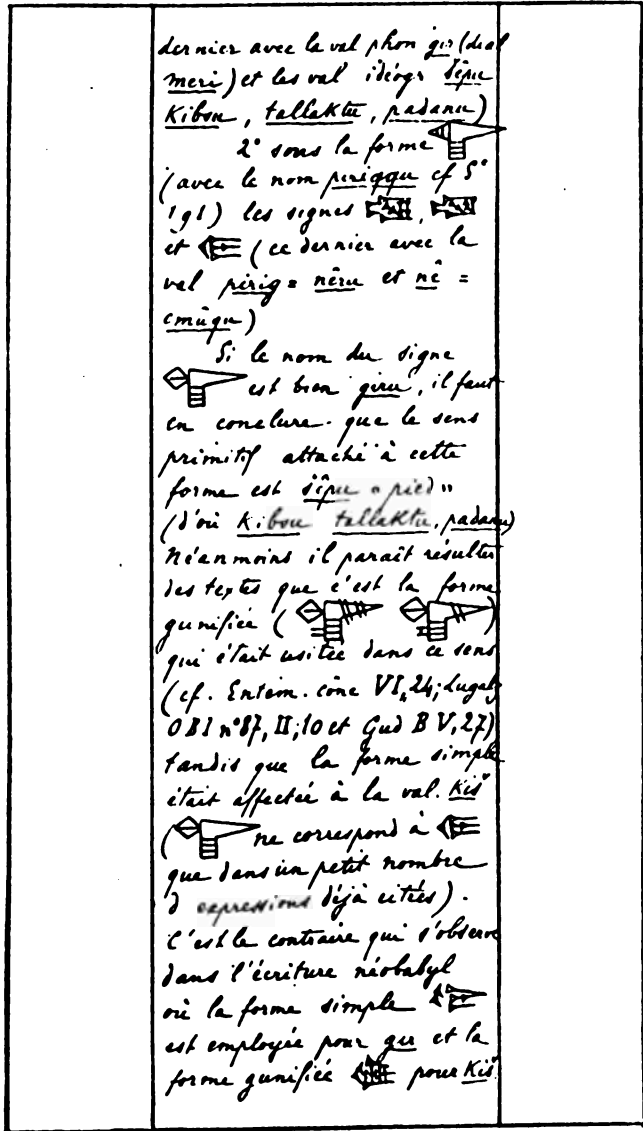 dernier avec la val phon gir (dial
meri) et les val idéogr šêpu
Kibsu, tallaktu, padanu)
2° sous la forme
(avec le nom piriqqu cf S°
1 91) les signes ,
et (ce dernier avec la
val pirig = nêru et nê =
emûqu)
Si le nom du signe
est bien giru, il faut
en conclure que le sens
primitif attaché à cette
forme est šêpu "pied"
(d'où Kibsu tallaktu, padanu)
Néanmoins il paraît résulter
des textes que c'est la forme
gunifiée ( )
qui était usitée dans ce sens
(cf. Entem. cône VI, 24; Lugalz
OBI n°87, II, 10 et Gud B V, 27)
tandis que la forme simple
était affectée à la val. Kiš
( ne correspond à
que dans un petit nombre
d expressions déjà citées).
C'est le contraire qui s'observe
dans l'écriture néobabyl
où la forme simple
est employée pour gir et la
forme gunifiée pour Kiš